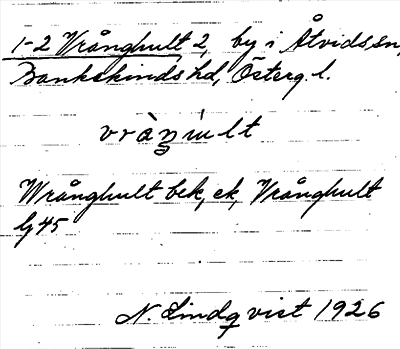 1-2 Vrånghult 2, by i Åtvids sn,
Bankekinds hd, Österg. l.
vràŋult
Wrånghult bek, ek, Vrånghult
Gj 45
N. Lindqvist 1926